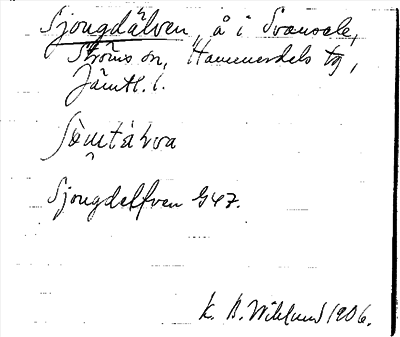 Sjougdälven, å i Svansele,
Ströms sn, Hammerdals tg,
Jämtl. l.
Sjougdelfven G47.
K. B. Wiklund 1906.